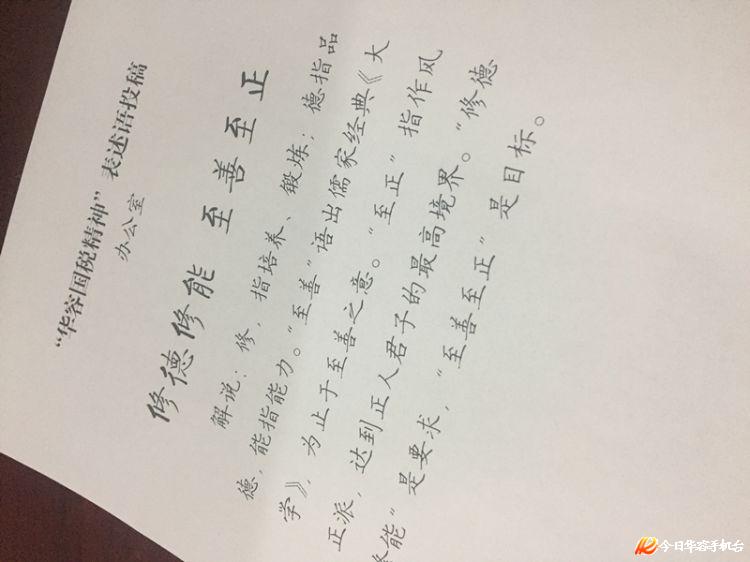 “华容国税精神”表述语投稿
办公室
修德修能 至善至正
解说：修，指培养、锻炼；德指品
德，能指能力。“至善”语出儒家经典《大
学》，为止于至善之意。“至正”指作风
正派，达到正人君子的最高境界。“修德
修能”是要求，“至善至正”是目标。
今日华容手机台